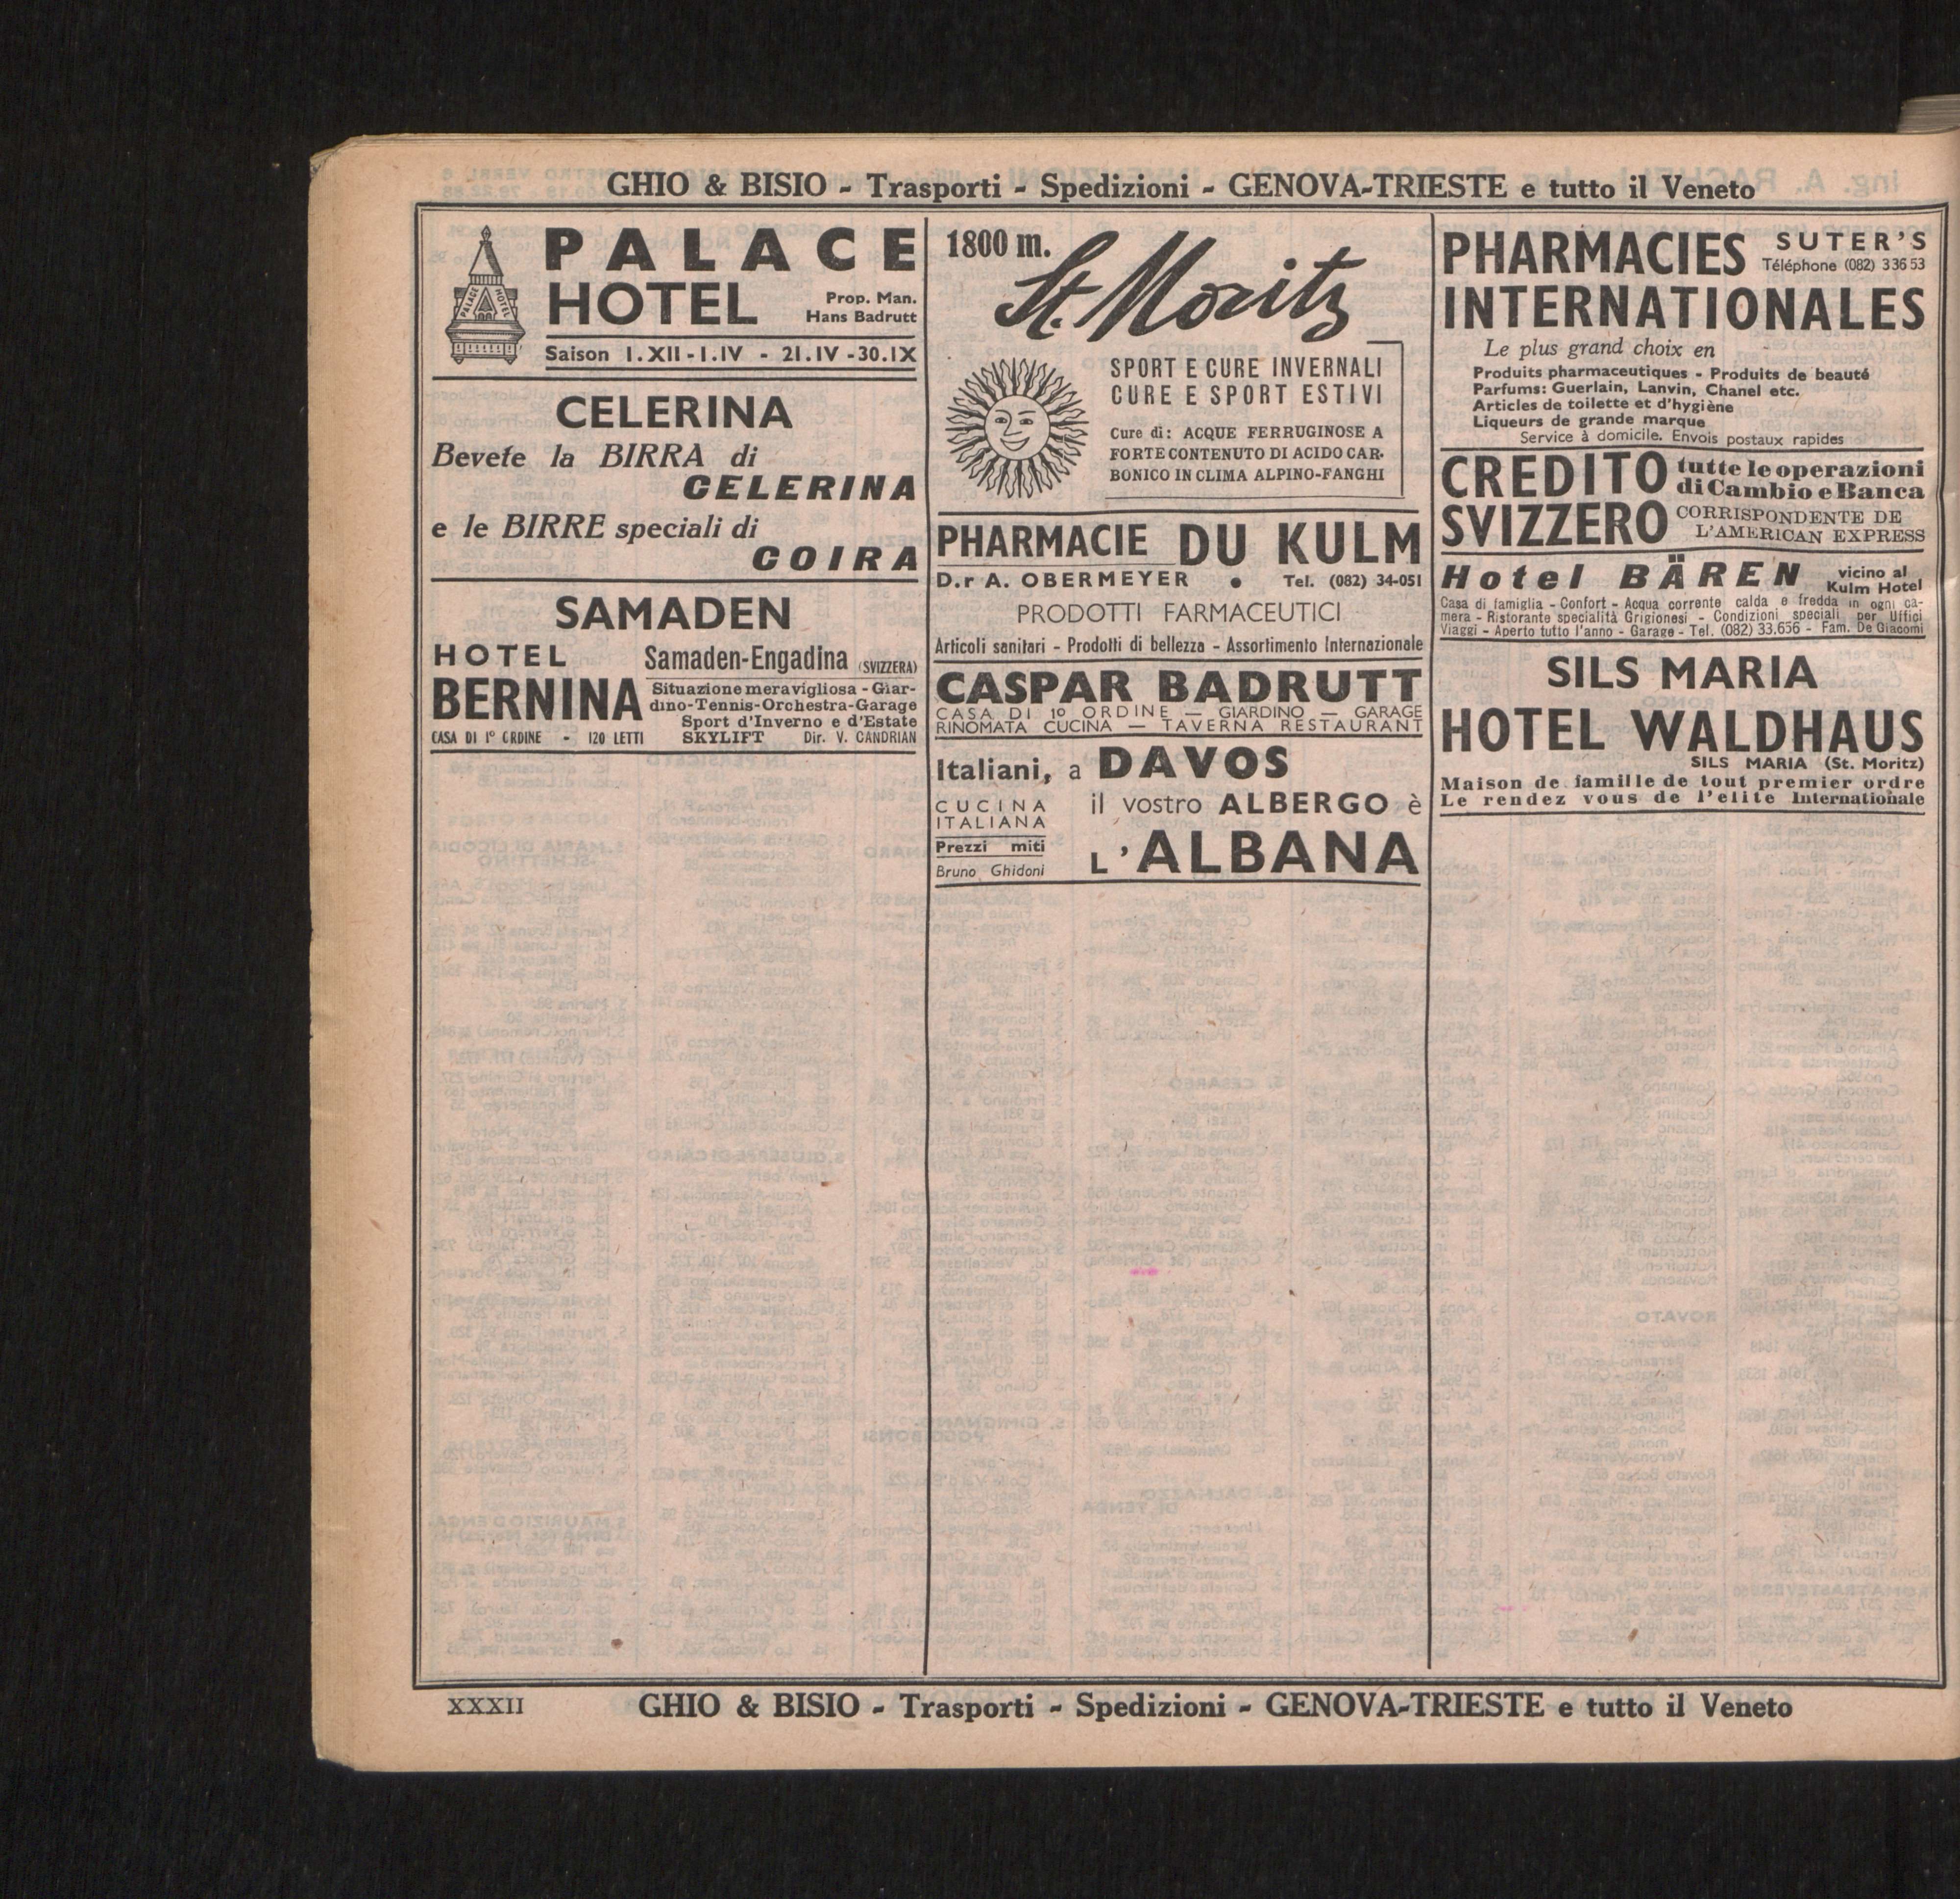 GHIO & BISIO - Trasporti - Spedizioni - GENOVA-TRIESTE e tutto il Veneto
PALACE
HOTEL
Prop. Man.
Hans Badrutt
PALACE HOTEL
Saison 1.XII-1.IV - 21.IV-30.IX
CELERINA
Bevete la BIRRA di
CELERINA
e le BIRRE speciali di
COIRA
SAMADEN
HOTEL
BERNINA
CASA DI 1º ORDINE - 120 LETTI
Samaden-Engadina (SVIZZERA)
Situazione meravigliosa - Giar-
dino-Tennis-Orchestra-Garage
Sport d'Inverno e d'Estate
SKYLIFT Dir. V. CANDRIAN
1800 m.
St. Moritz
SPORT E CURE INVERNALI
CURE E SPORT ESTIVI
Cure di: ACQUE FERRUGINOSE A
FORTE CONTENUTO DI ACIDO CAR-
BONICO IN CLIMA ALPINO-FANGHI
PHARMACIE DU KULM
D.r A. OBERMEYER • Tel. (082) 34-051
PRODOTTI FARMACEUTICI
Articoli sanitari - Prodotti di bellezza - Assortimento Internazionale
CASPAR BADRUTT
CASA DI 1º ORDINE — GIARDINO — GARAGE
RINOMATA CUCINA — TAVERNA RESTAURANT
Italiani, a DAVOS
il vostro ALBERGO è
L'ALBANA
CUCINA
ITALIANA
Prezzi miti
Bruno Ghidoni
PHARMACIES SUTER'S
Téléphone (082) 33653
INTERNATIONALES
Le plus grand choix en
Produits pharmaceutiques - Produits de beauté
Parfums: Guerlain, Lanvin, Chanel etc.
Articles de toilette et d'hygiène
Liqueurs de grande marque
Service à domicile. Envois postaux rapides
CREDITO
SVIZZERO
tutte le operazioni
di Cambio e Banca
CORRISPONDENTE DE
L'AMERICAN EXPRESS
Hotel BÄREN vicino al
Kulm Hotel
Casa di famiglia - Confort - Acqua corrente calda e fredda in ogni ca-
mera - Ristorante specialità Grigionesi - Condizioni speciali per Uffici
Viaggi - Aperto tutto l'anno - Garage - Tel. (082) 33.656 - Fam. De Giacomi
SILS MARIA
HOTEL WALDHAUS
SILS MARIA (St. Moritz)
Maison de famille de tout premier ordre
Le rendez vous de l'elite Internationale
XXXII
GHIO & BISIO - Trasporti - Spedizioni - GENOVA-TRIESTE e tutto il Veneto